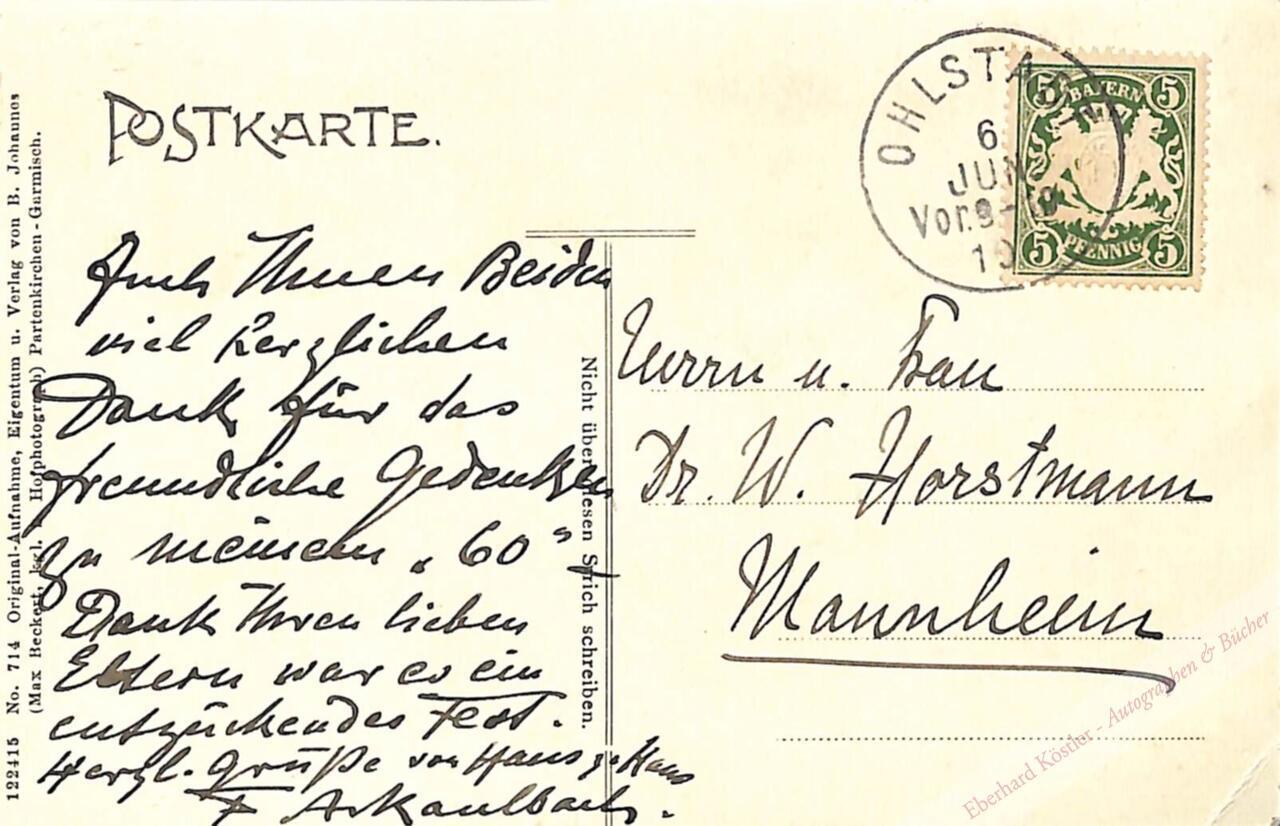 POSTKARTE.
OHLSTADT
6
JUN
Vor.9-10
1
BAYERN
5 5
5 5
PFENNIG
Auch Ihnen Beiden
viel herzlichen
Dank für das
freundliche Gedenken
zu meinem „60"
Dank Ihren lieben
Eltern war es ein
entzückendes Fest.
Herzl. Grüße von Haus zu Haus
F A v Kaulbach.
Herrn u. Frau
Dr. W. Horstmann
Mannheim
Nicht über diesen Strich schreiben.
122415 No. 714 Original-Aufnahme, Eigentum u. Verlag von B. Johannes
(Max Beckert, kgl. Hofphotograph) Partenkirchen-Garmisch.
Eberhard Köstler - Autographen & Bücher